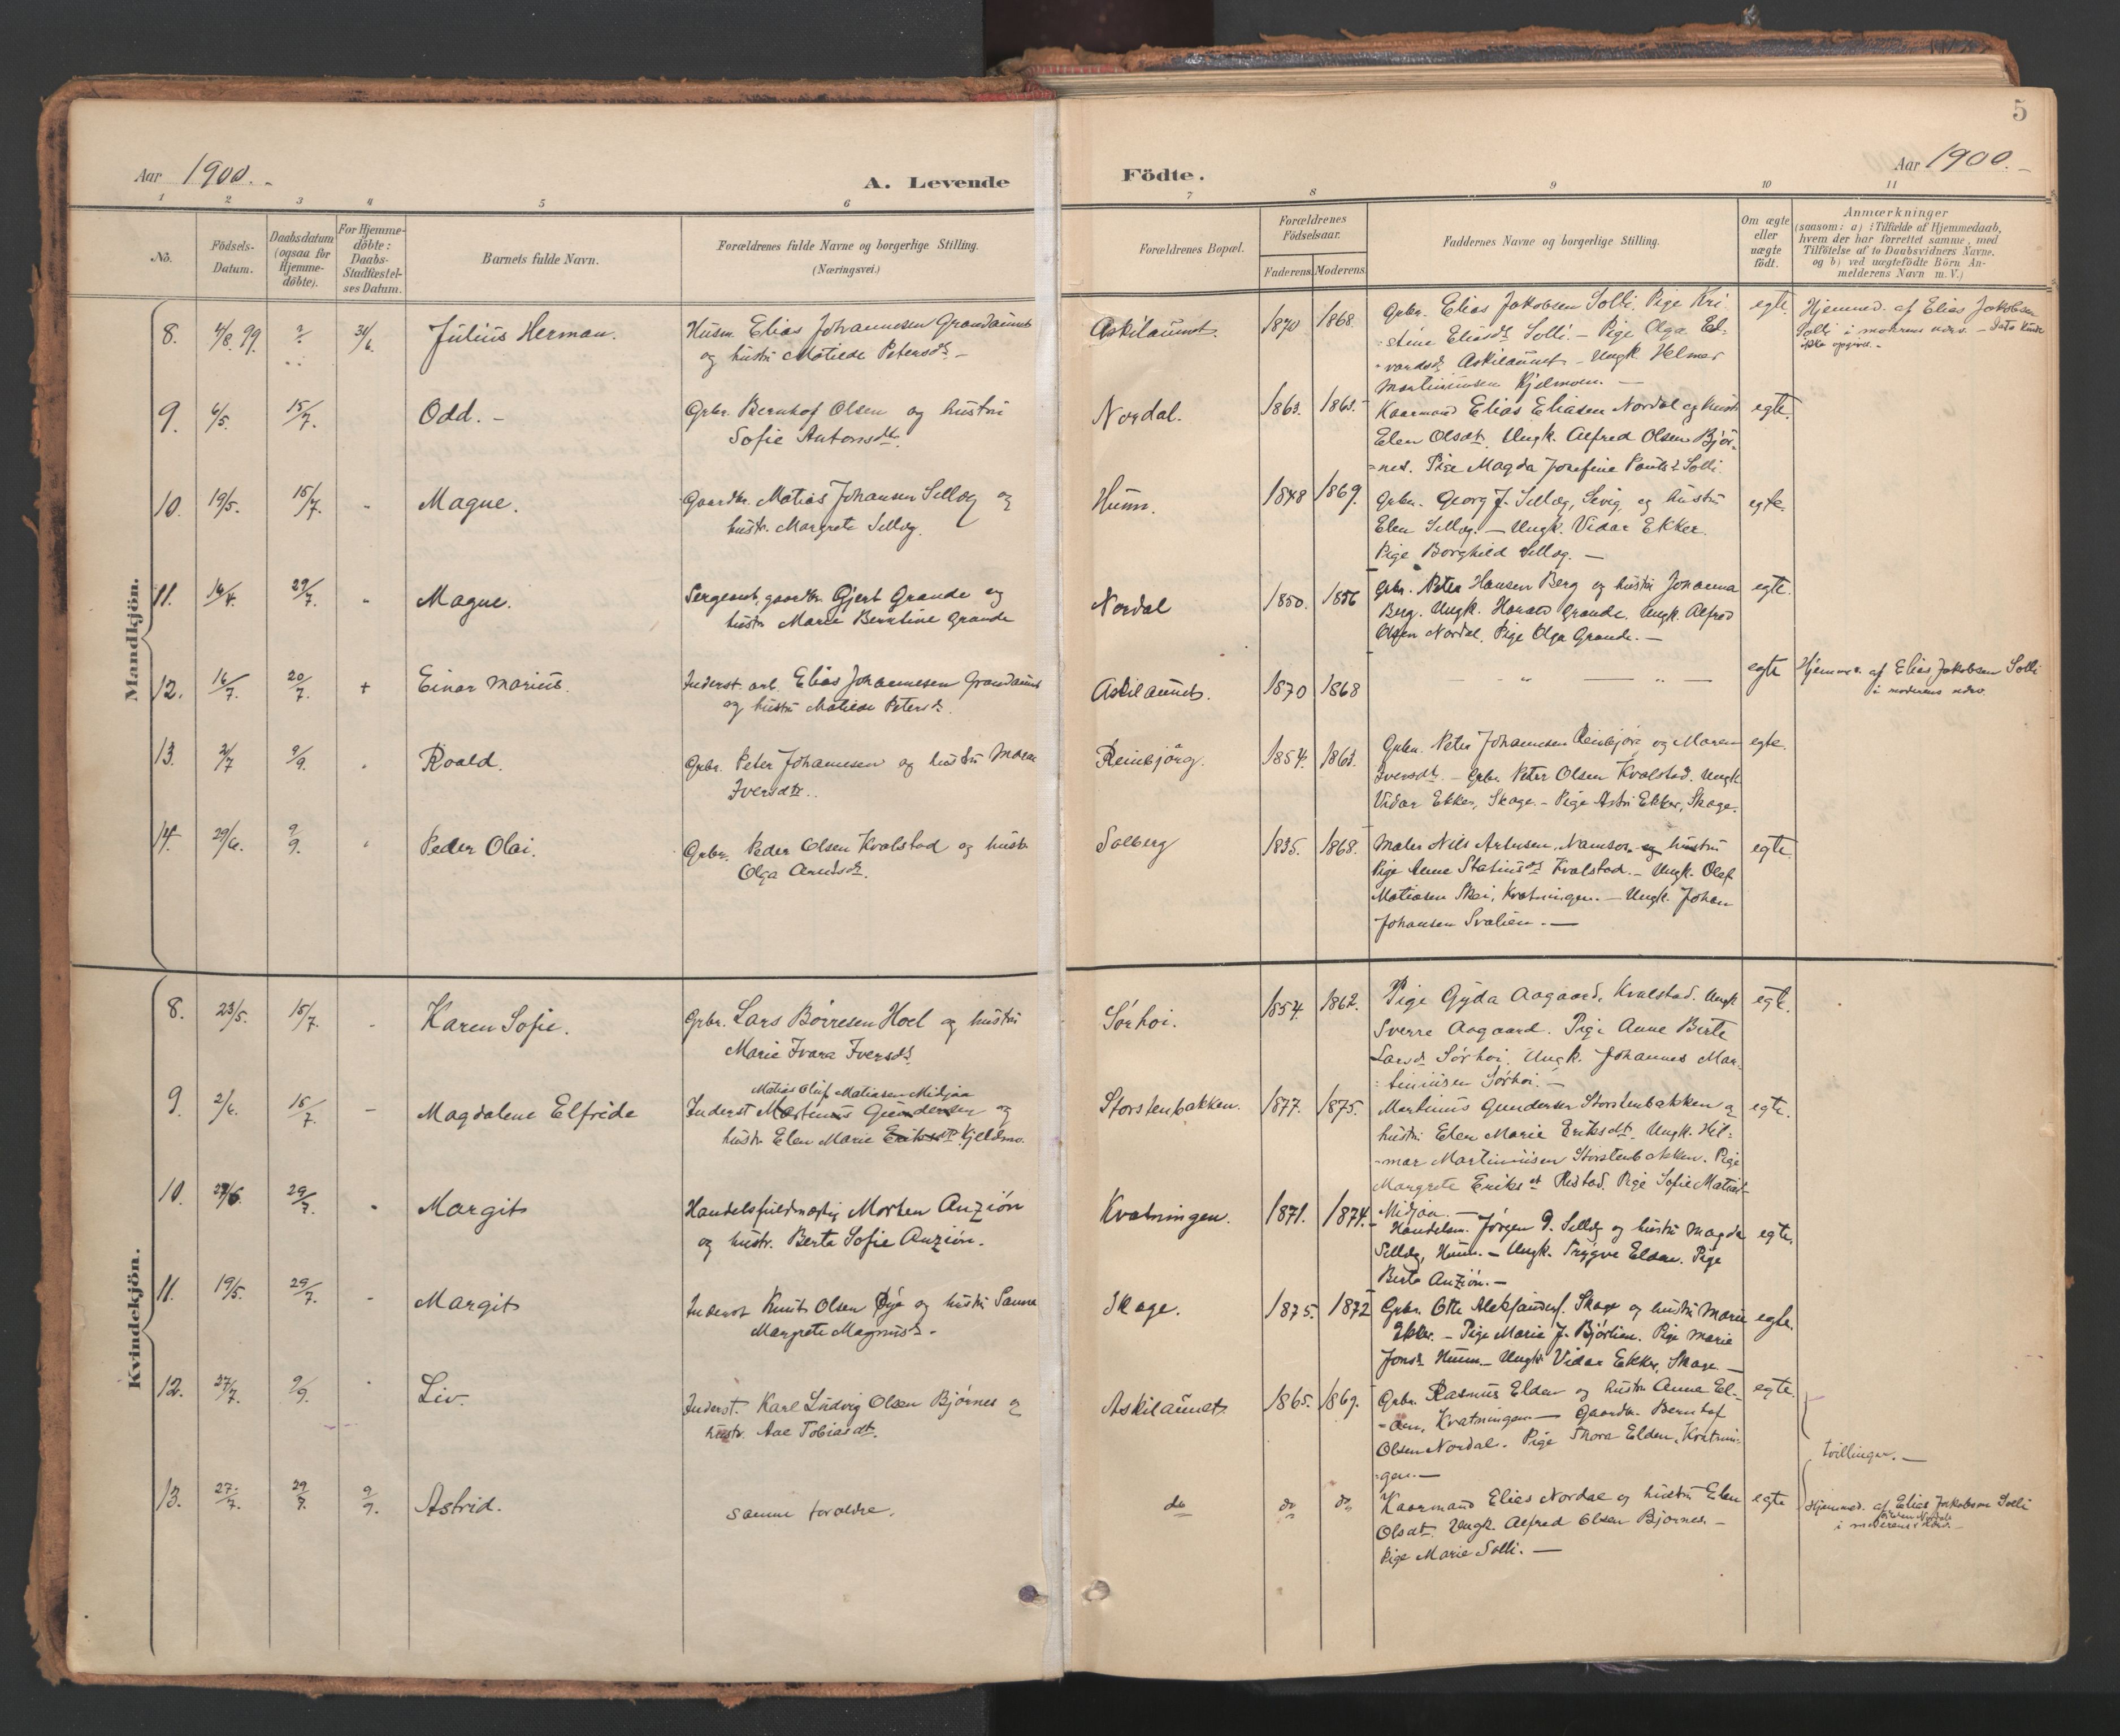 5
Aar 1900.
A. Levende
Födte.
Aar 1900.
1 2 3 4 5 6 7 8 9 10 11
No.
Födsels-Datum.
Daabsdatum (ogsaa for Hjemme-döbte).
For Hjemme-döbte: Daabs-Stadfæstel-ses Datum.
Barnets fulde Navn.
Forældrenes fulde Navne og borgerlige Stilling.
(Næringsvei.)
Forældrenes Bopæl.
Forældrenes Födselsaar.
Faderens
Moderens
Faddernes Navne og borgerlige Stilling.
Om ægte eller uægte födt.
Anmærkninger
(saasom: a) i Tilfælde af Hjemmedaab,
hvem der har forrettet samme, med
Tilföielse af to Daabsvidners Navne.
og b) ved uægtefödte Börn An-
melderens Navn m. V.)
Mandkjön.
8. 4/8 99. ? 31/6. Julius Herman.
Husm. Elias Johannesen Grandaunet
og hustru Matilde Petersdt. –
Askilaunet. 1870 1868.
Grbr. Elias Jakobsen Solli. Pige Kri-
stine Eliasdt Solli. – Pige Olga Ed-
vardsdt Askilaunet – Ungk. Helmer
Martinusen Kjelmoen. –
egte
Hjemmed. af Elias Jakobsen
Solli i moderens nærv. – Dato kunde
ikke opgives. –
9. 6/5. 15/7. Odd. –
Grbr. Bernhof Olsen og hustru
Sofie Antonsdt.
Nordal. 1863. 1863.
Kaarmand Elias Eliasen Nordal og hustru
Elen Olsdt. Ungk. Alfred Olsen Bjør-
nes. Pige Magda Josefine Solli.
egte.
10. 19/5. 15/7. Magne.
Gaardbr. Matias Johansen Sellæg og
hustr. Margrete Sellæg.
Humm. 1848 1869.
Grbr. Georg J. Sellæg, Sevig og hustru
Elen Sellæg. – Ungk. Vidar Ekker.
Pige Borghild Sellæg. –
egte.
11. 16/4. 29/7. Magne.
Sergeant, gaardbr. Gjert Grande og
hustr. Marie Berntine Grande
Nordal 1850. 1856
Grbr. Peter Hansen Berg og hustru Johanna
Berg. Ungk. Harald Grande. Ungk. Alfred
Olsen Nordal. Pige Olga Grande. –
egte.
12. 16/7. 20/7. + Einar Marius.
Inderst. arb. Elias Johannesen Grandaunet
og hustru Matilde Petersdt.
Askilaunet. 1870 1868
– „ – „ –
egte
Hjemmed. af Elias Jakobsen Solli
i moderens nærv.
13. 2/7 9/9. Roald.
Grbr. Peter Johannesen og hustru Maren
Iversdtr.
Reinbjörg. 1854. 1863.
Grbr. Peter Johannesen Reinbjørg og Maren
Iversdt. – Grbr. Peter Olsen Kvalstad. Ungk
Vidar Ekker, Skage. – Pige Astri Ekker, Skage.
egte.
14. 29/6. 9/9. Peder Olai.
Grbr. Peder Olsen Kvalstad og hustr.
Olga Arntsdt.
Solberg 1835. 1868.
Maler Nils Arntsen, Namsos og hustru
Pige Anne Statiusdt Kvalstad. – Ungk. Olaf
Matiasen Skei, Kvatningen. – Ungk. Johan
Johansen Svalien. –
egte
Kvindekjön.
8. 23/5. 15/7. Karen Sofie.
Grbr. Lars Børresen Hoel og hustru
Marie Ivara Iversdt
Sørhoi. 1854. 1862.
Pige Gyda Aagaard, Kvalstad. Ungk
Sverre Aagaard. Pige Anne Berte
Larsdt Sørhoi. Ungk. Johannes Mar-
tiniusen Sørhoi. –
egte.
9. 2/6. 15/7. – Magdalene Elfride
Matias Oluf Matiasen Midjaa
Inderst Martinus Gundersen og
hustr. Elen Marie Eriksdt Kjelmo.
Storstenbakken. 1877. 1875.
Martinus Gundersen Storstenbakken og
hustru Elen Marie Eriksdt. Ungk. Hil-
mar Martinusen Storstenbakken. Pige
Margrete Eriksdt Restad. Pige Sofie Matiasdt
Midjaa. –
egte.
10. 29/6. 29/7. Margit
Handelsfuldmægtig Morten Anzión
og hustr. Berta Sofie Anzión.
Kvatningen. 1871. 1874.
Handelsm. Jørgen P. Sellæg og hustru Magda
Sellæg, Humm. – Ungk. Trygve Elden. Pige
Berta Anzión. –
egte.
11. 19/5. 29/7. – Margit
Inderst Knut Olsen Øye og hustru Sanna
Margrete Magnusdt. –
Skage. 1875. 1872
Grbr. Otte Aleksanders. Skage og hustru Marie
Ekker. – Pige Marie J. Bjørlien. Pige Marie
Jonsdt Humm – Ungk Vidar Ekker, Skage. –
egte.
12. 27/7. 9/9. Liv.
Inderst. Karl Ludvig Olsen Bjørnes og
hustr. Ane Tobiasdt.
Askilaunet. 1865. 1869.
Grbr. Rasmus Elden og hustru Anne El-
den, Kvatningen – Gaardbr. Bernhof
Olsen Nordal. Pige Thora Elden, Kvatnin-
gen. –
egte.
tvillinger. –
13. 27/7. 29/7. 9/9. Astrid.
samme forældre.
do do do
Kaarmand Elias Nordal og hustru Elen
Olsdt. Ungk. Alfred Olsen Bjørnes –
Pige Marie Solli. –
egte
Hjemmed. af Elias Jakobsen Solli
i moderens nærv. –